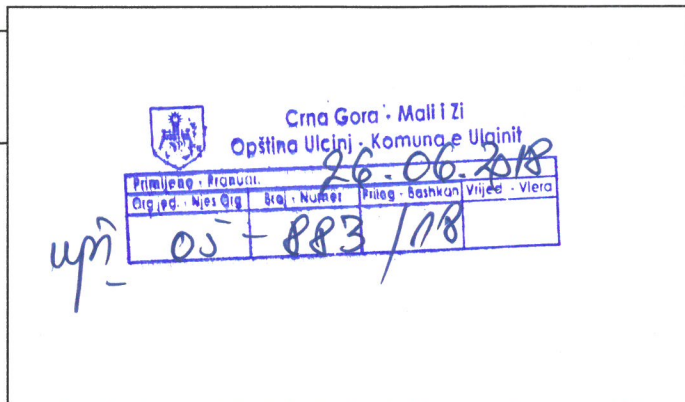 Crna Gora · Mali i Zi
Opština Ulcinj · Komuna e Ulqinit
Primljeno · Pranuar. 26.06.2018
Org jed. · Njes Org Broj · Numer Prilog · Bashkan Vrijed · Vlera
05 - 883 /18